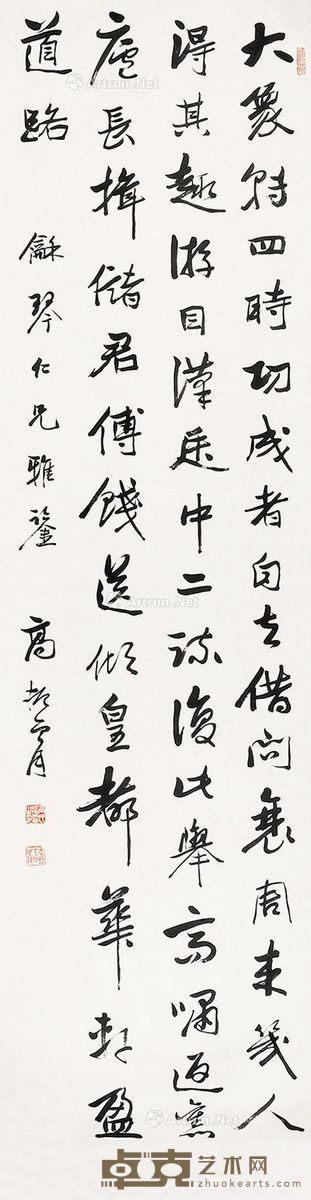 大象轉四時功成者自去借問衰周來幾人
得其趣游目漢廷中二疏復此舉高嘯返舊
廬長揖儲君傅餞送傾皇都華軒盈
道路
龢琴仁兄雅鑒
高振霄
Artron.Net
卓克艺术网
zhuokearts.com